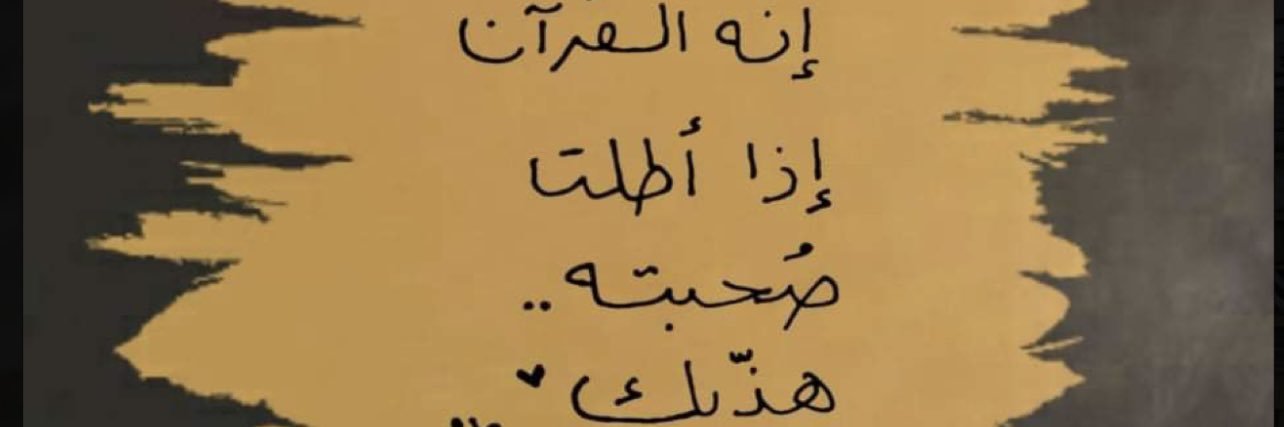 إنه القرآن
إذا أطلت
صُحبته..
هذّبك